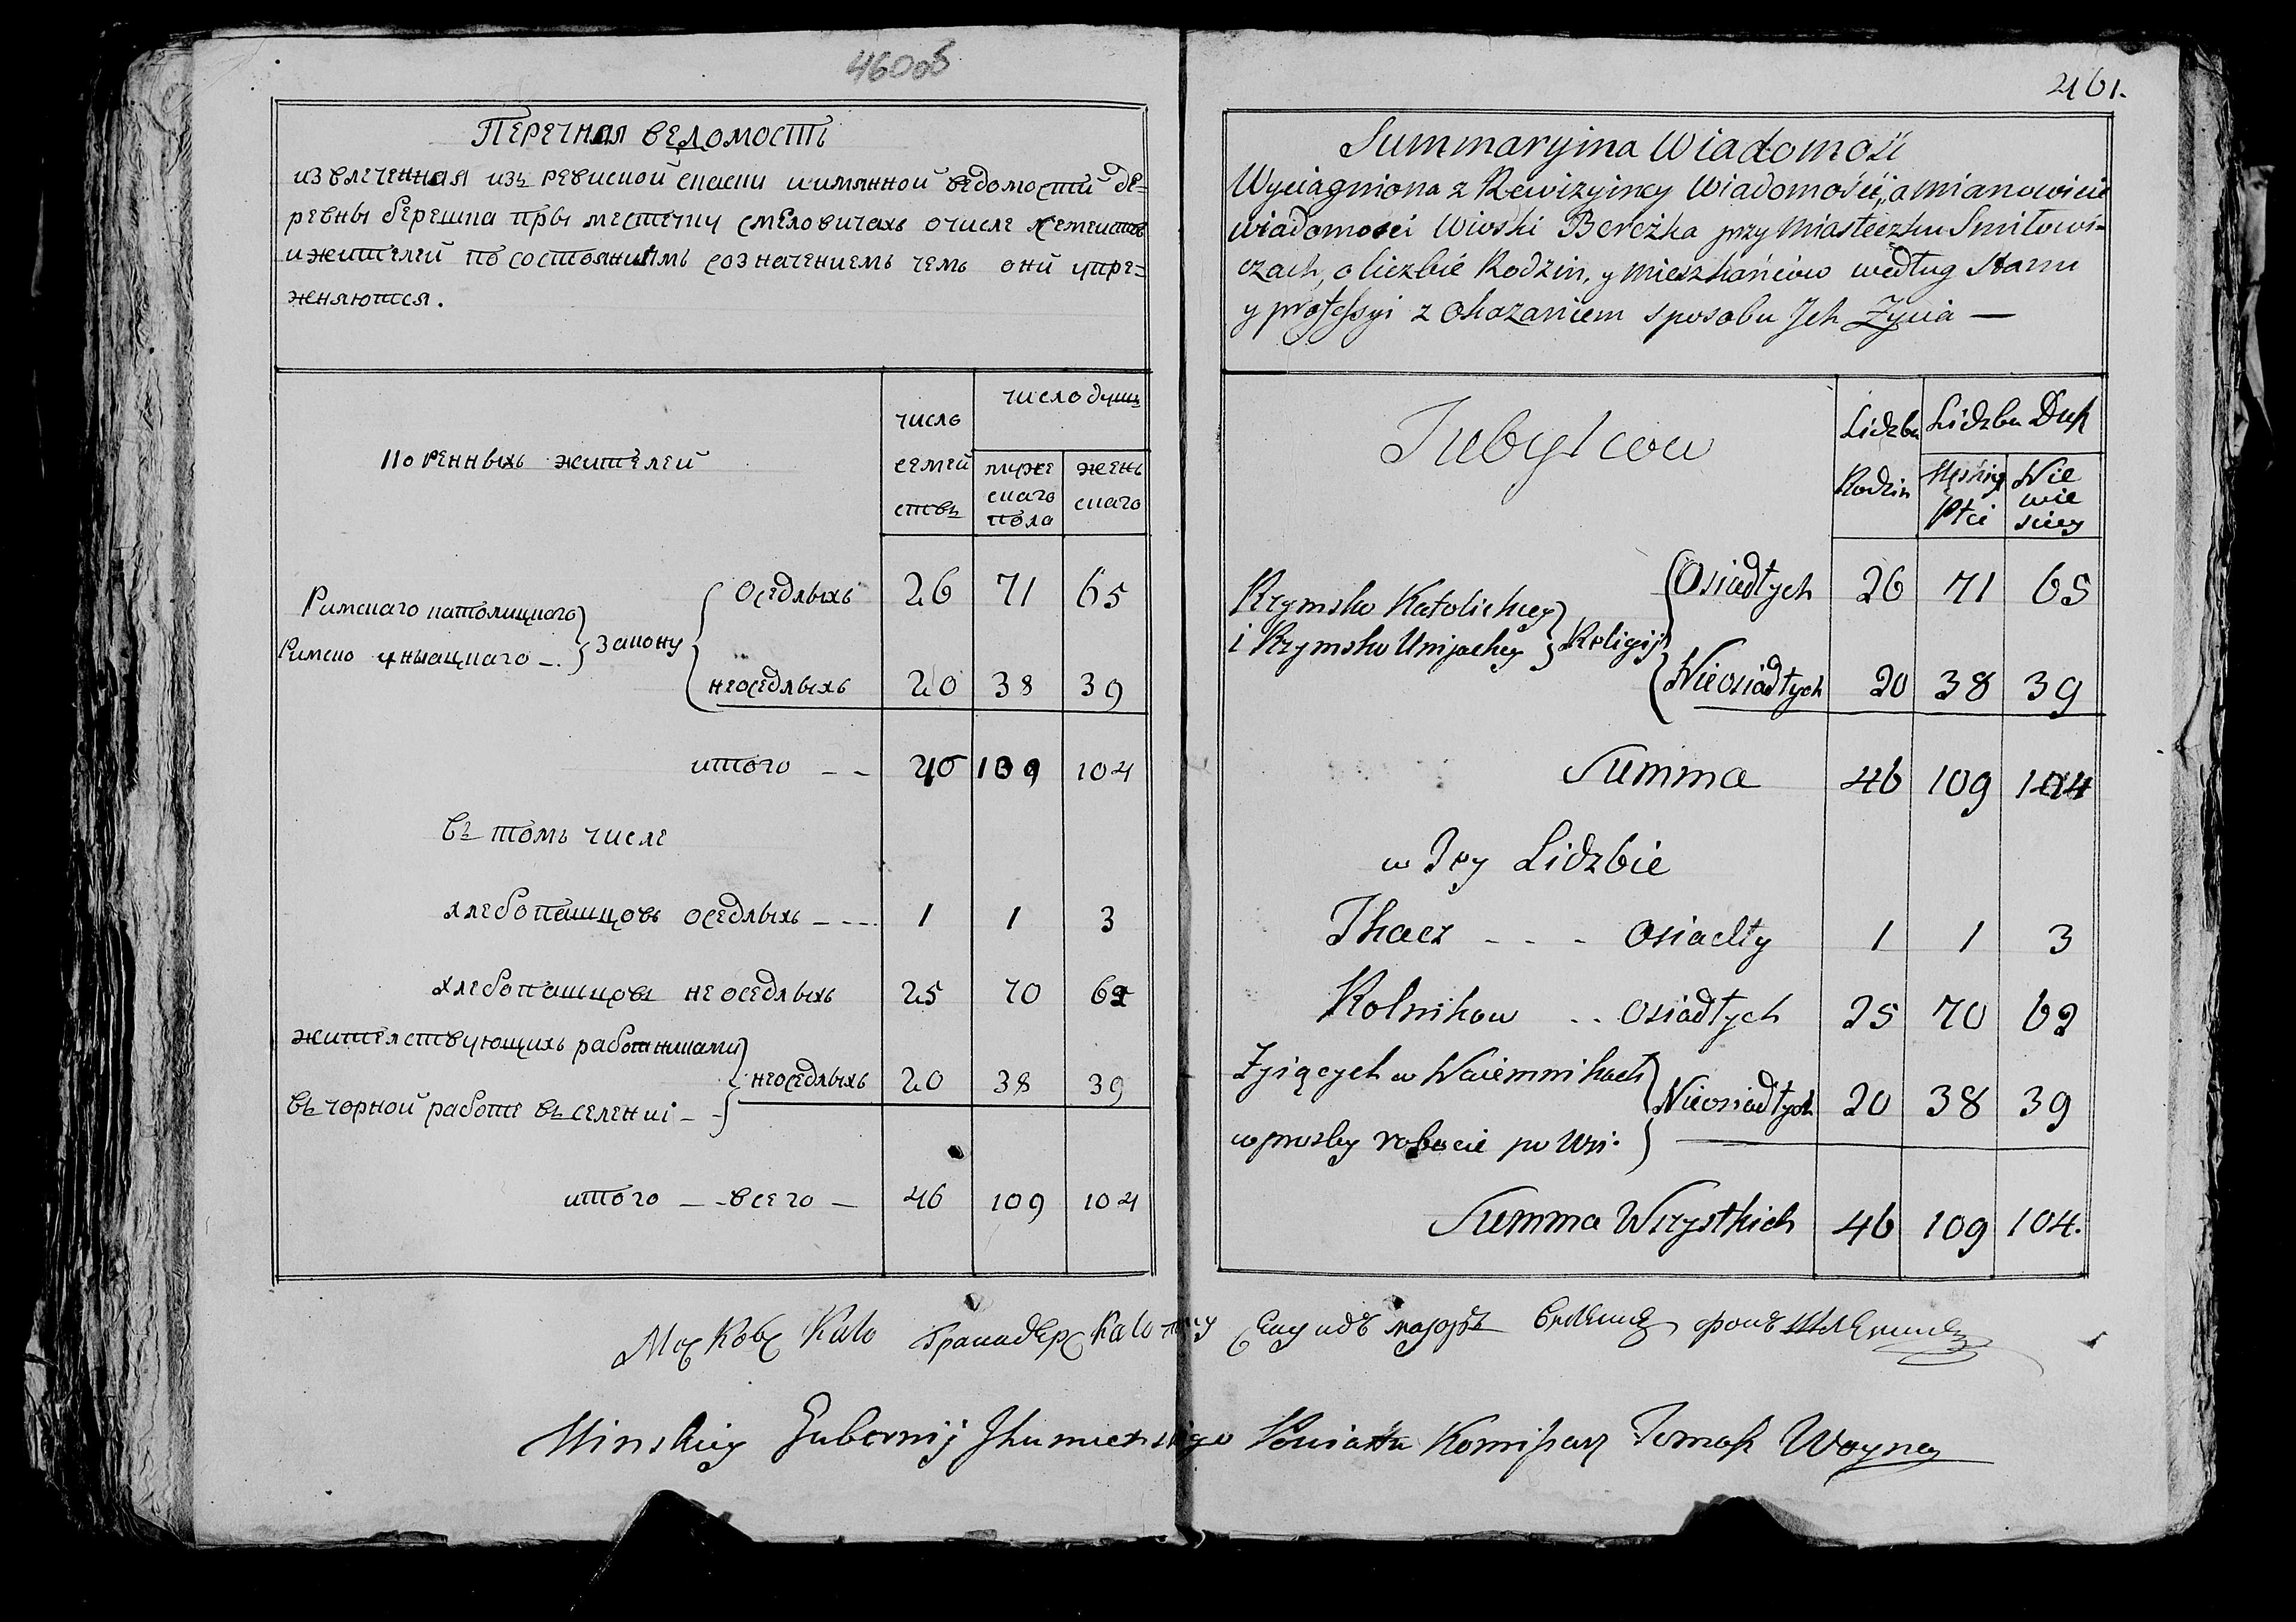 460об
Перечная ведомость
извлеченная изъ ревиской скаски иимянной ведомости де-
ревны бережка пры местечку смеловичахъ очисле семеиствъ
ижителей по состояниямъ созначениемъ чемъ они упре-
жняются.
число
семей
ствъ
число душъ
коренныхъ жителей
муже
скаго
пола
жень
скаго
Римскаго католицкаго
Римско униацкаго — } Закону
оседлыхъ 26 71 65
неоседлыхъ 20 38 39
итого – – 46 109 104
въ томъ числе
хлебопашцовъ оседлыхъ – – – 1 1 3
хлебопашцовъ не оседлыхъ 25 70 62
жителствующихъ работниками
въ чорной работе въ селениі – – } неоседлыхъ 20 38 39
итого – – всего – 46 109 104
461.
Summaryina Wiadomość
Wyciągniona z Rewizyiney Wiadomości, a mianowicie
wiadomości Wioski Bereżka przy Miasteczku Smiłowi-
czach, o liczbie Rodzin, y Mieszkańców według Stanu
y professyi z Okazaniem sposobu Jch Życia —
Tubylcow
Lidzba
Rodzin
Lidzba Dusz
Męskiey
Płci
Nie
wie
sciey
Rzymsko Katolickiey
i Rzymsko Uniiackiey } Religij
Osiadłych 26 71 65
Nieosiadłych 20 38 39
Summa 46 109 104
w Tey Lidzbie
Tkacz - - - Osiadły 1 1 3
Rolnikow - - Osiadłych 25 70 62
Zyiących w Naiemnikach
w prostey robocie po Wsi. } Nieosiadłych 20 38 39
Summa Wszystkich 46 109 104.
секундъ маіоръ фонъ
Minskiey Gubernij Jhumenskiego Powiatu Komissarz Tomasz Woyna